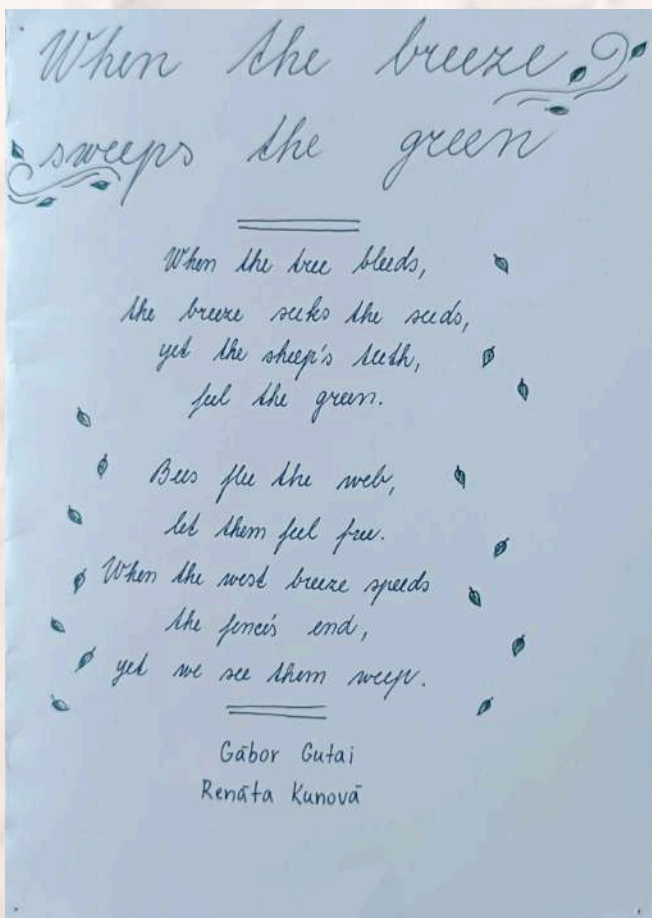 When the breeze
sweeps the green
When the tree bleeds,
the breeze seeks the seeds,
yet the sheep's teeth,
feel the green.
Bees flee the web,
let them feel free.
When the west breeze speeds
the fence's end,
yet we see them weep.
Gábor Gutai
Renáta Kunová